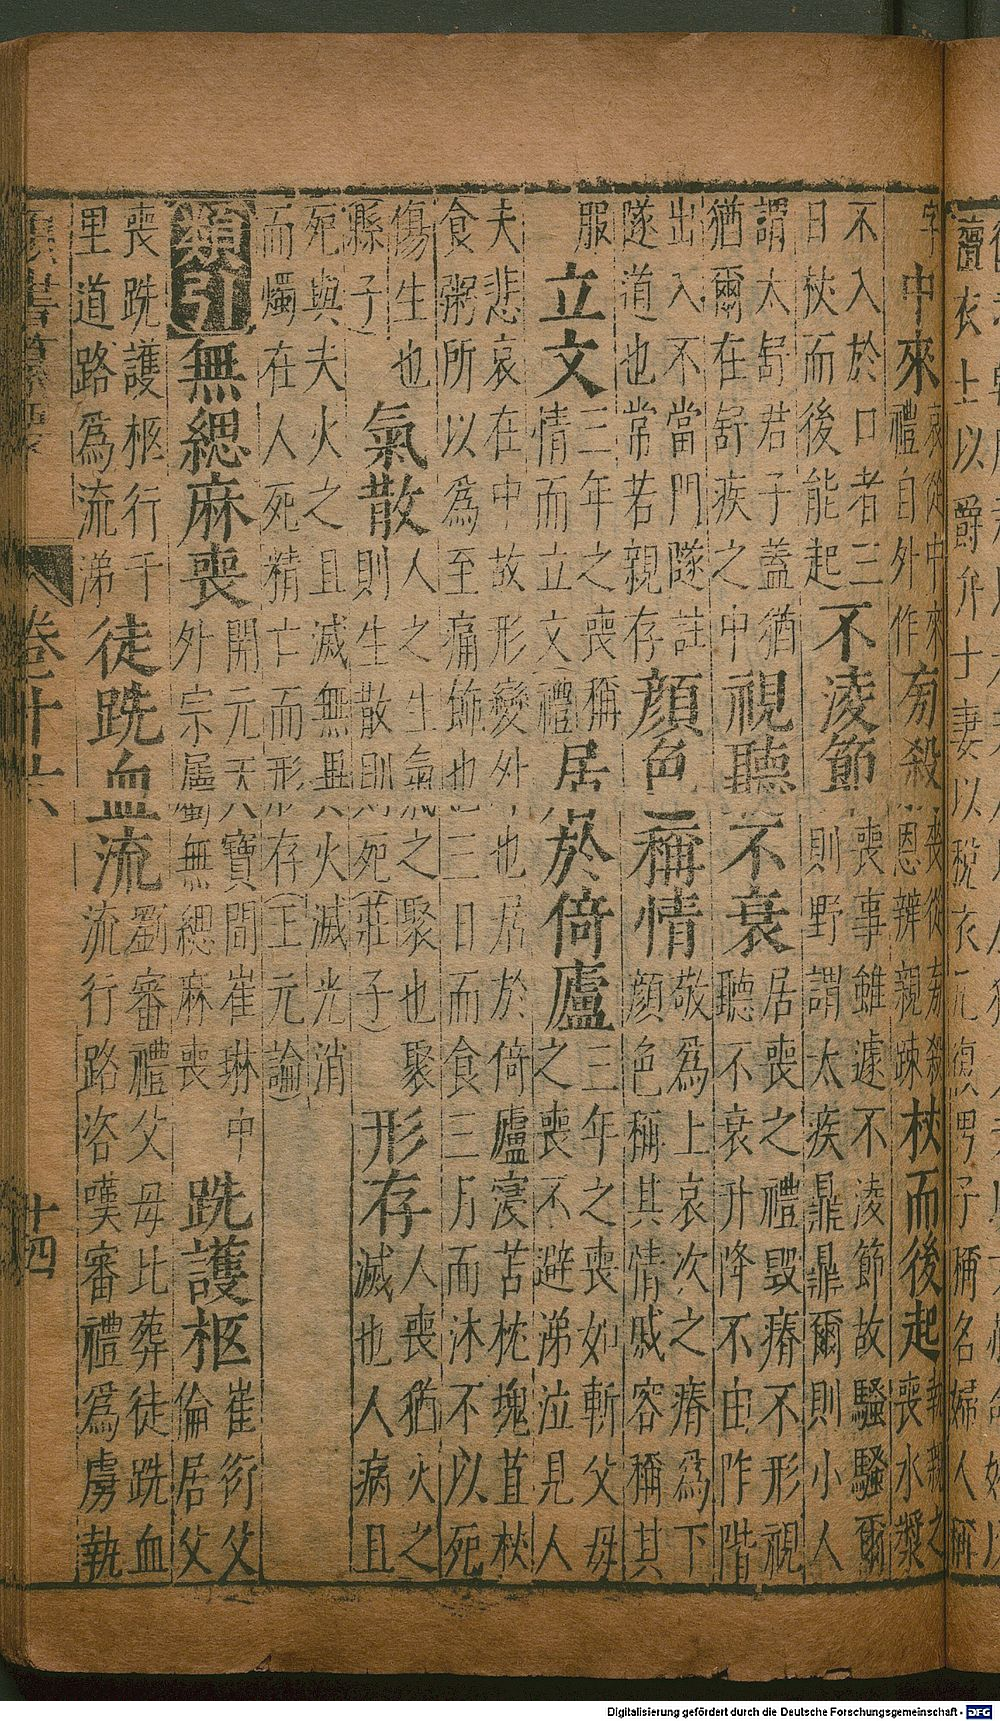 襢衣士以爵弁士妻以稅衣 復男子稱名婦人稱
字
中來
哀從中來
禮自外作
旁殺
喪從旁殺
恩辨親踈
杖而後起
執親之
喪水漿
不入於口者三
日杖而後能起
不淩節
喪事雖遽不淩節故騷騷爾
則野謂太疾鼎鼎爾則小人
謂太舒君子蓋猶
猶爾在舒疾之中
視聽不衰
居喪之禮毀瘠不形視
聽不衰升降不由阼階
出入不當門隧註
隧道也常若親存
顏色稱情
敬爲上哀次之瘠爲下
顏色稱其情戚容稱其
服
立文
三年之喪稱
情而立文(禮)
居於倚廬
三年之喪如斬父母
之喪不避涕泣見人
夫悲哀在中故形變外也居於倚廬寢苫枕塊苴杖
食粥所以爲至痛飾也三日而食三月而沐不以死
傷生也
縣子
氣散
人之生氣之聚也聚
則生散則死(莊子)
形存
人喪猶火之
滅也人病且
死與夫火之且滅無異火滅光消
而燭在人死精亡而形存(王元論)
類引
無緦麻喪
開元天寶間崔琳中
外宗屬無緦麻喪
跣護柩
崔衍父
倫居父
喪跣護柩行千
里道路爲流涕
徒跣血流
劉審禮父母比葬徒跣血
流行路咨嘆審禮爲虜執
卷廿六
十四
Digitalisierung gefördert durch die Deutsche Forschungsgemeinschaft - DFG